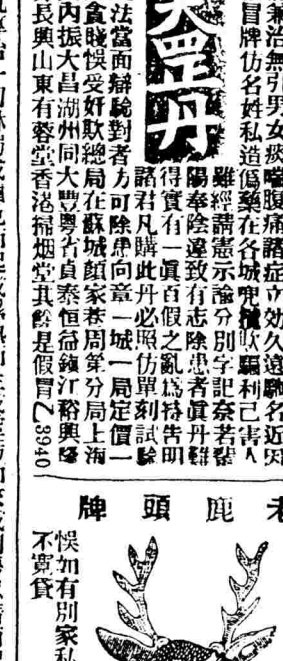 天罡丹
兼治無引男女痰喘腹痛諸症立効久遠馳名近
冒牌仿名姓私造僞藥在各城兜攬欺騙利己害人
雖經請憲示諭分別字記奈若輩
陽奉陰違致有志除患者眞丹難
得實有一眞百假之亂爲特告明
諸君凡購此丹必照仿單刻試驗
法當面辯驗對者方可除患向章一城一局定價一
貪賤悞受奸欺總局在蘇城顏家巷周第分局上海
內振大昌湖州同大豐粵省貞泰恒益鎮江裕興隆
長興山東有蓉堂香港掃烟堂其餘是假冒乙3940
老鹿頭牌
悞如有別家私
不寬貸